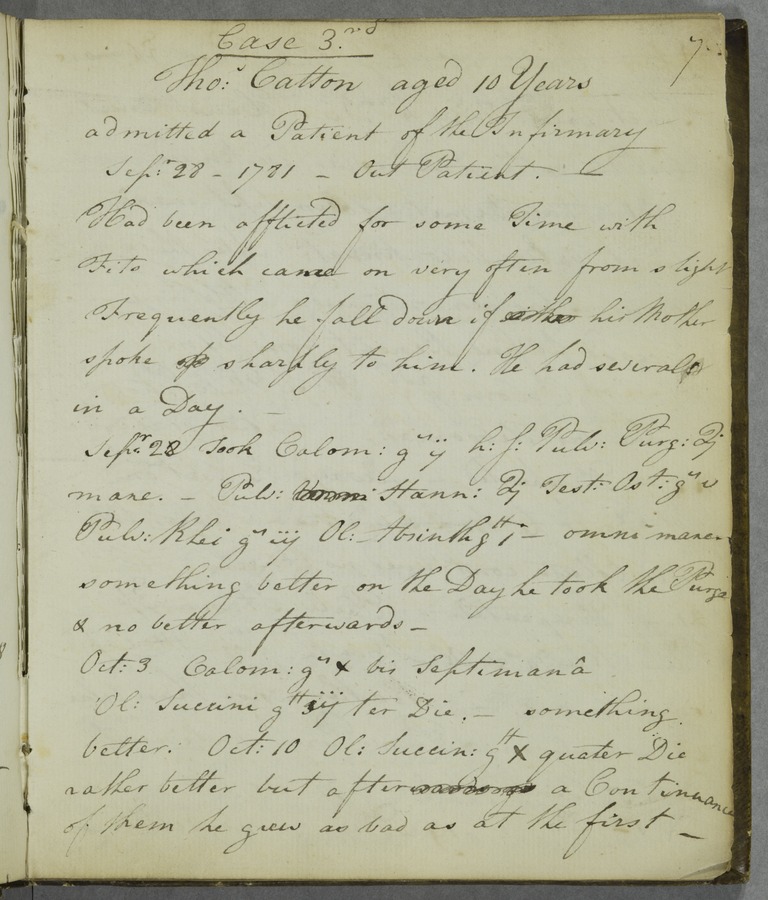 Case 3.rd
7
Tho:s Catton aged 10 Years
admitted a Patient of the Infirmary
Sep:r 28 - 1781 - Out Patient. -
Had been afflicted for some Time with
Fits which came on very often from slight
Frequently he fall down if his Mother
spoke sharply to him. He had several
in a Day. -
Sep:r 28 Took Calom: gr ij h: s: Pulv: Purg: ℈j
mane. - Pulv: Stann: ℈j Test: Ost: gr v
Pulv: Rhei gr iij Ol: Absinth gtt j - omni mane
something better on the Day he took the Purge
& no better afterwards -
Oct: 3 Calom: gr x bis Septimanâ
Ol: Succini gtt ter Die. - something
better. Oct: 10 Ol: Succin: gtt X quater Die
rather better but after a Continuance
of them he grew as bad as at the first -